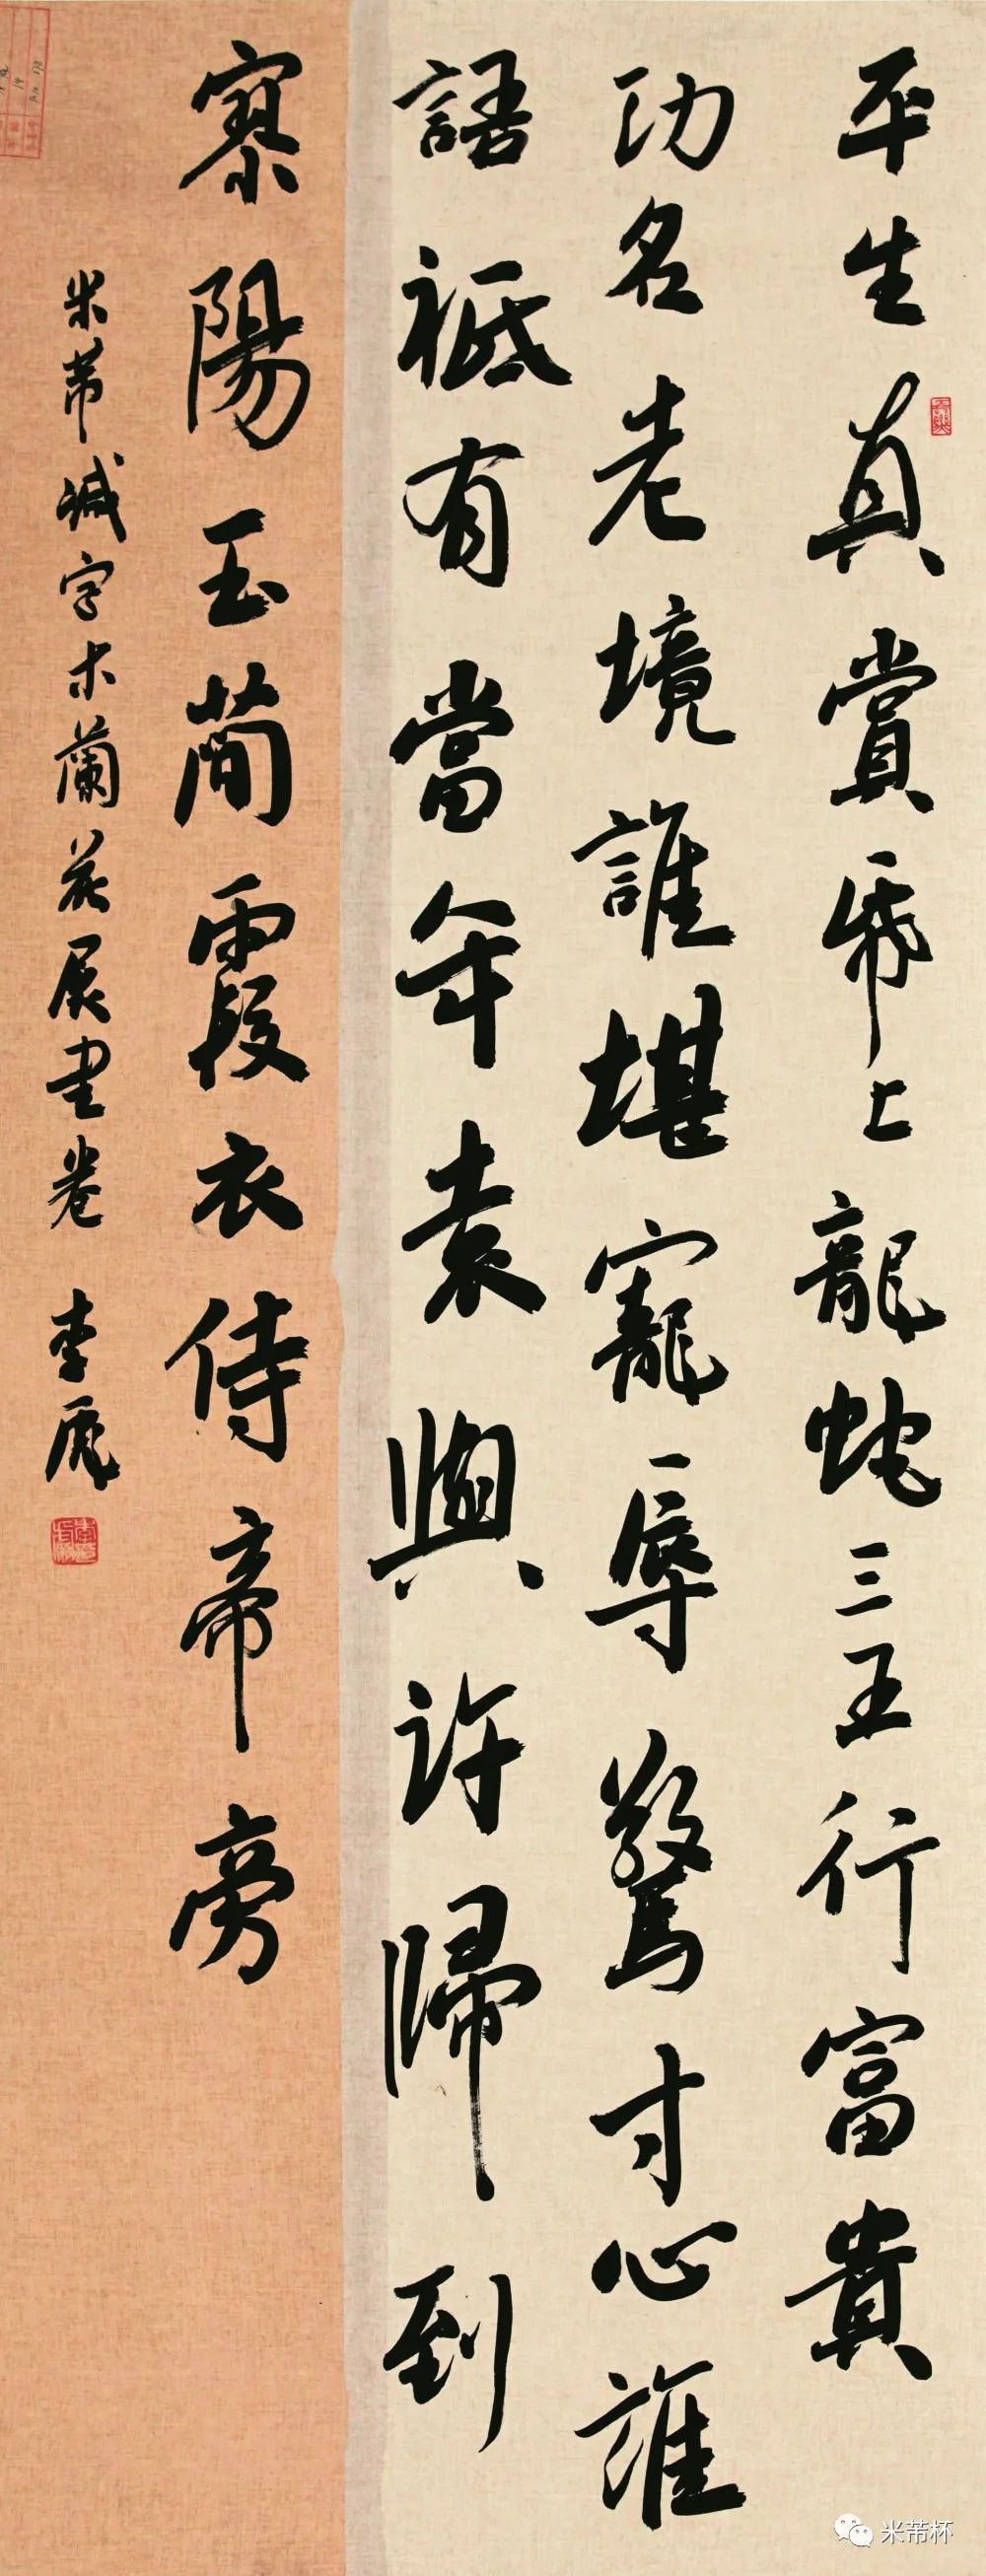 平生真賞帋上龍蛇三五行富貴
功名老境誰堪寵辱驚寸心誰
語祗有當年袁與許歸到
寥陽玉簡霞衣侍帝旁
米芾減字木蘭花展書卷 李
米芾杯